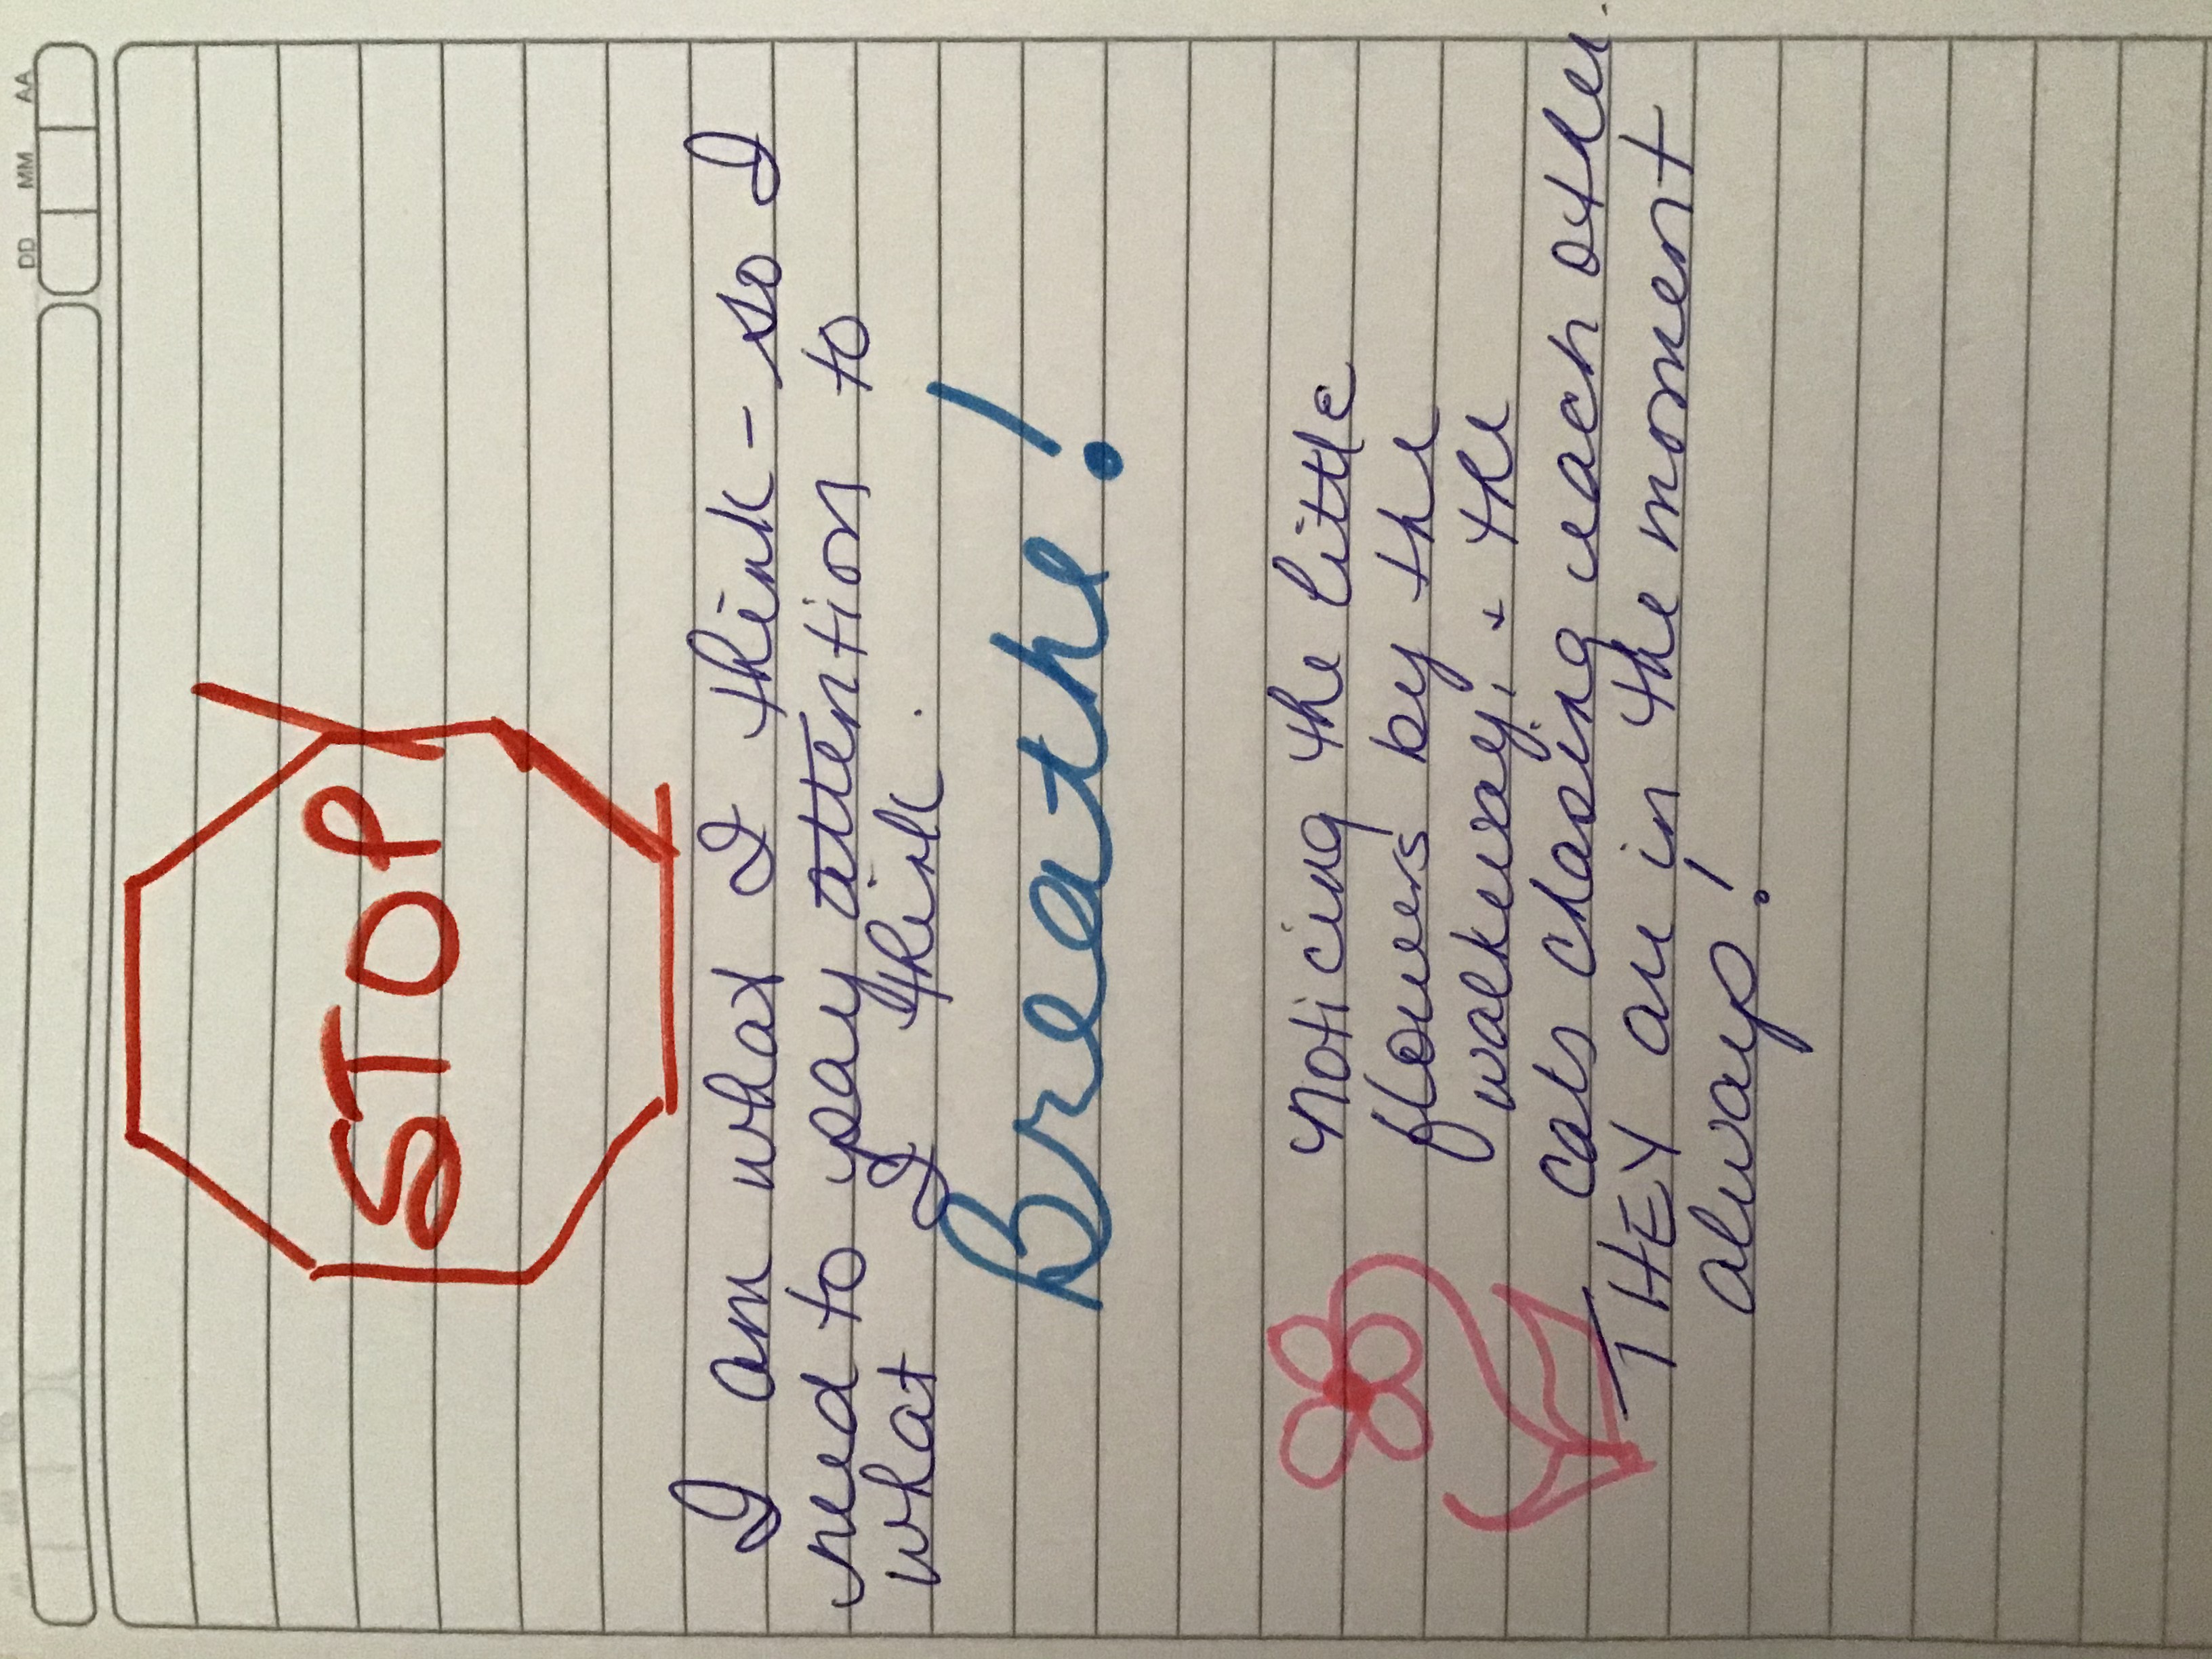 DD MM AA
STOP
I am what I think - so I
need to pay attention to
what I think.
Breathe!
noticing the little
flowers by the
walkway, + the
cats chasing each other.
THEY are in the moment
always!